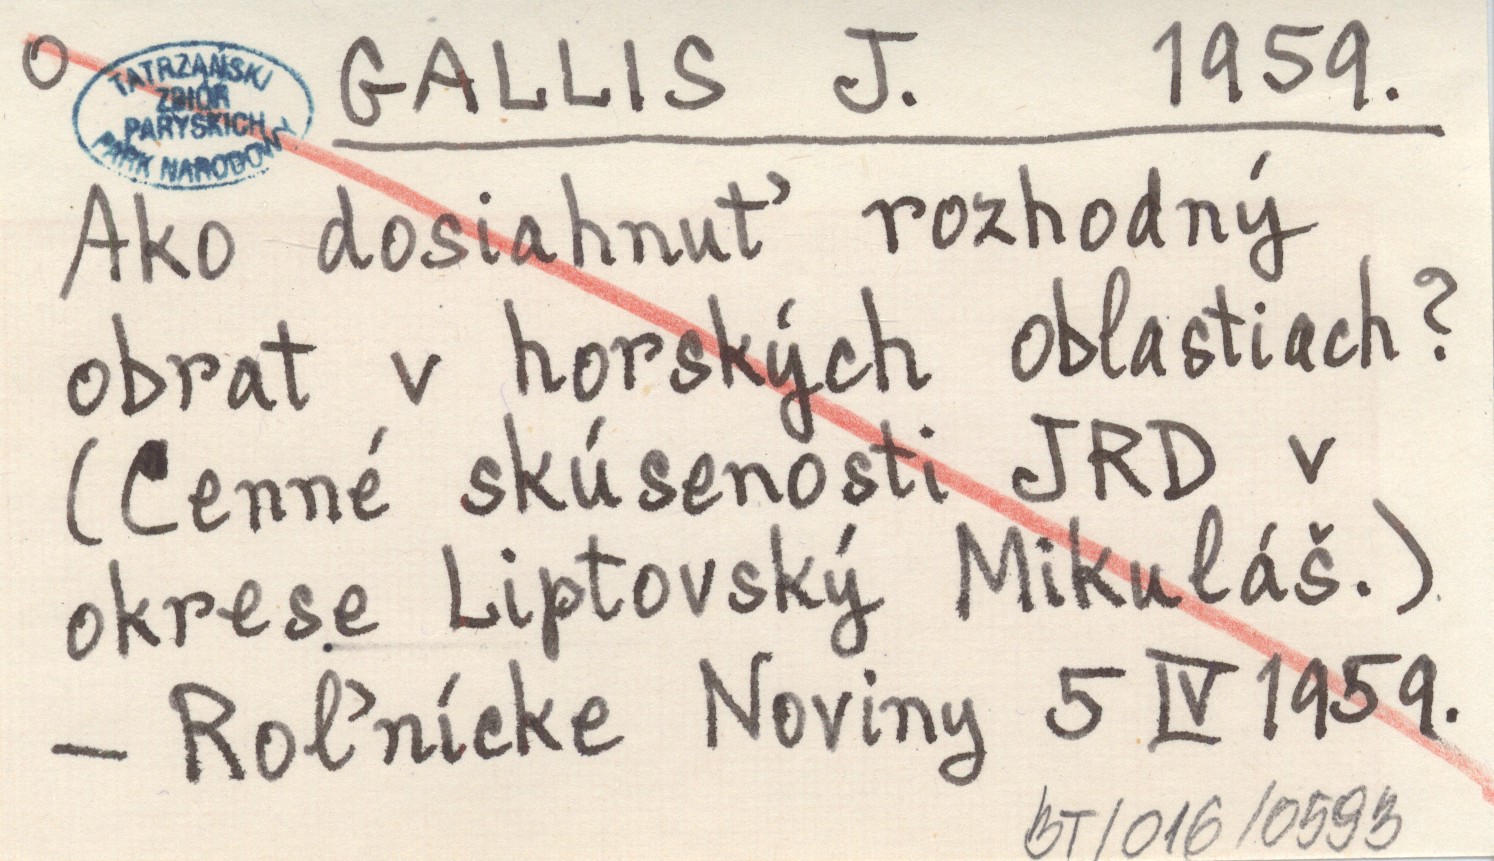 O GALLIS J. 1959.
TATRZAŃSKI
ZBIÓR
PARYSKICH
PARK NARODOWY
Ako dosiahnuť rozhodný
obrat v horských oblastiach?
(Cenné skúsenosti JRD v
okrese Liptovský Mikuláš.)
— Roľnícke Noviny 5 IV 1959.
BT/016/0593